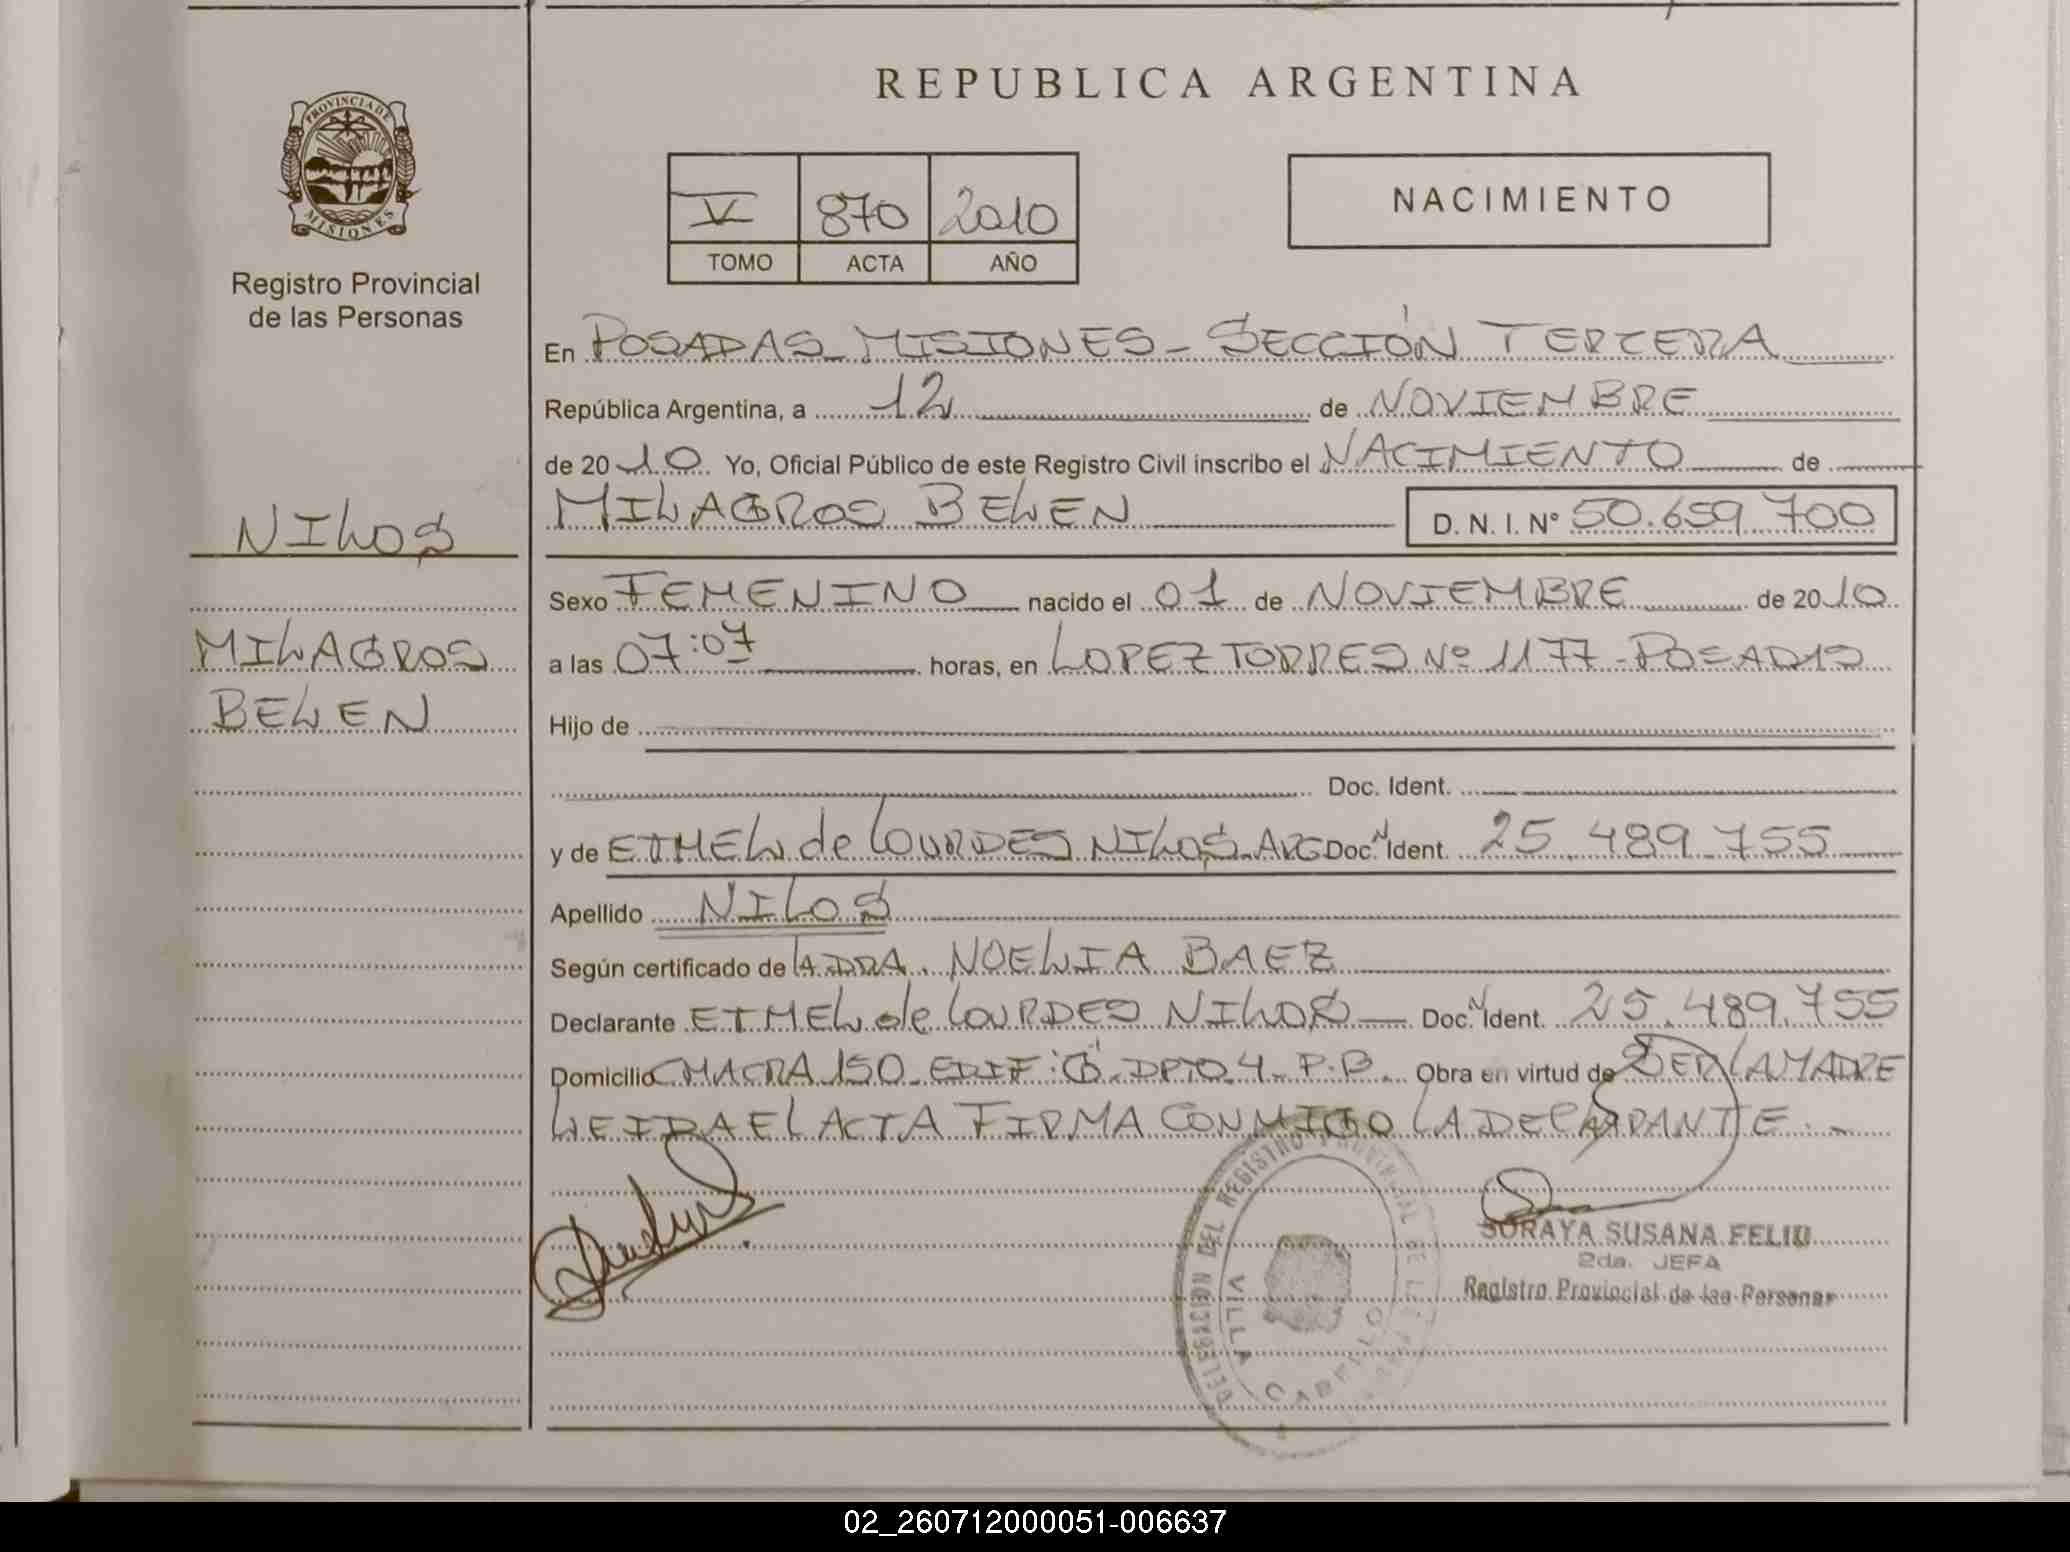 REPUBLICA ARGENTINA
PROVINCIA DE
MISIONES
Registro Provincial
de las Personas
V 870 2010
TOMO ACTA AÑO
NACIMIENTO
En POSADAS MISIONES - SECCIÓN TERCERA
República Argentina, a 12 de NOVIEMBRE
de 2010 Yo, Oficial Público de este Registro Civil inscribo el NACIMIENTO de
MILAGROS BELEN D. N. I. N° 50.659.700
NILOS
MILAGROS
BELEN
Sexo FEMENINO nacido el 01 de NOVIEMBRE de 2010
a las 07:07 horas, en LOPEZ TORRES Nº 1177 - POSADAS
Hijo de
Doc. Ident.
y de ETHEL de LOURDES NILOS - ARG Doc. N Ident. 25.489.755
Apellido NILOS
Según certificado de LA DRA. NOELIA BAEZ
Declarante ETHEL de LOURDES NILOS Doc. N Ident. 25.489.755
Domicilio CHACRA 150 EDIF: DPTO 4 P.B. Obra en virtud de SER LA MADRE
LEIDA EL ACTA FIRMA CONMIGO LA DECLARANTE.-
DELEGACION DEL REGISTRO PROVINCIAL DE LAS
VILLA CABELLO
SORAYA SUSANA FELIU
2da. JEFA
Registro Provincial de las Personas
02_260712000051-006637